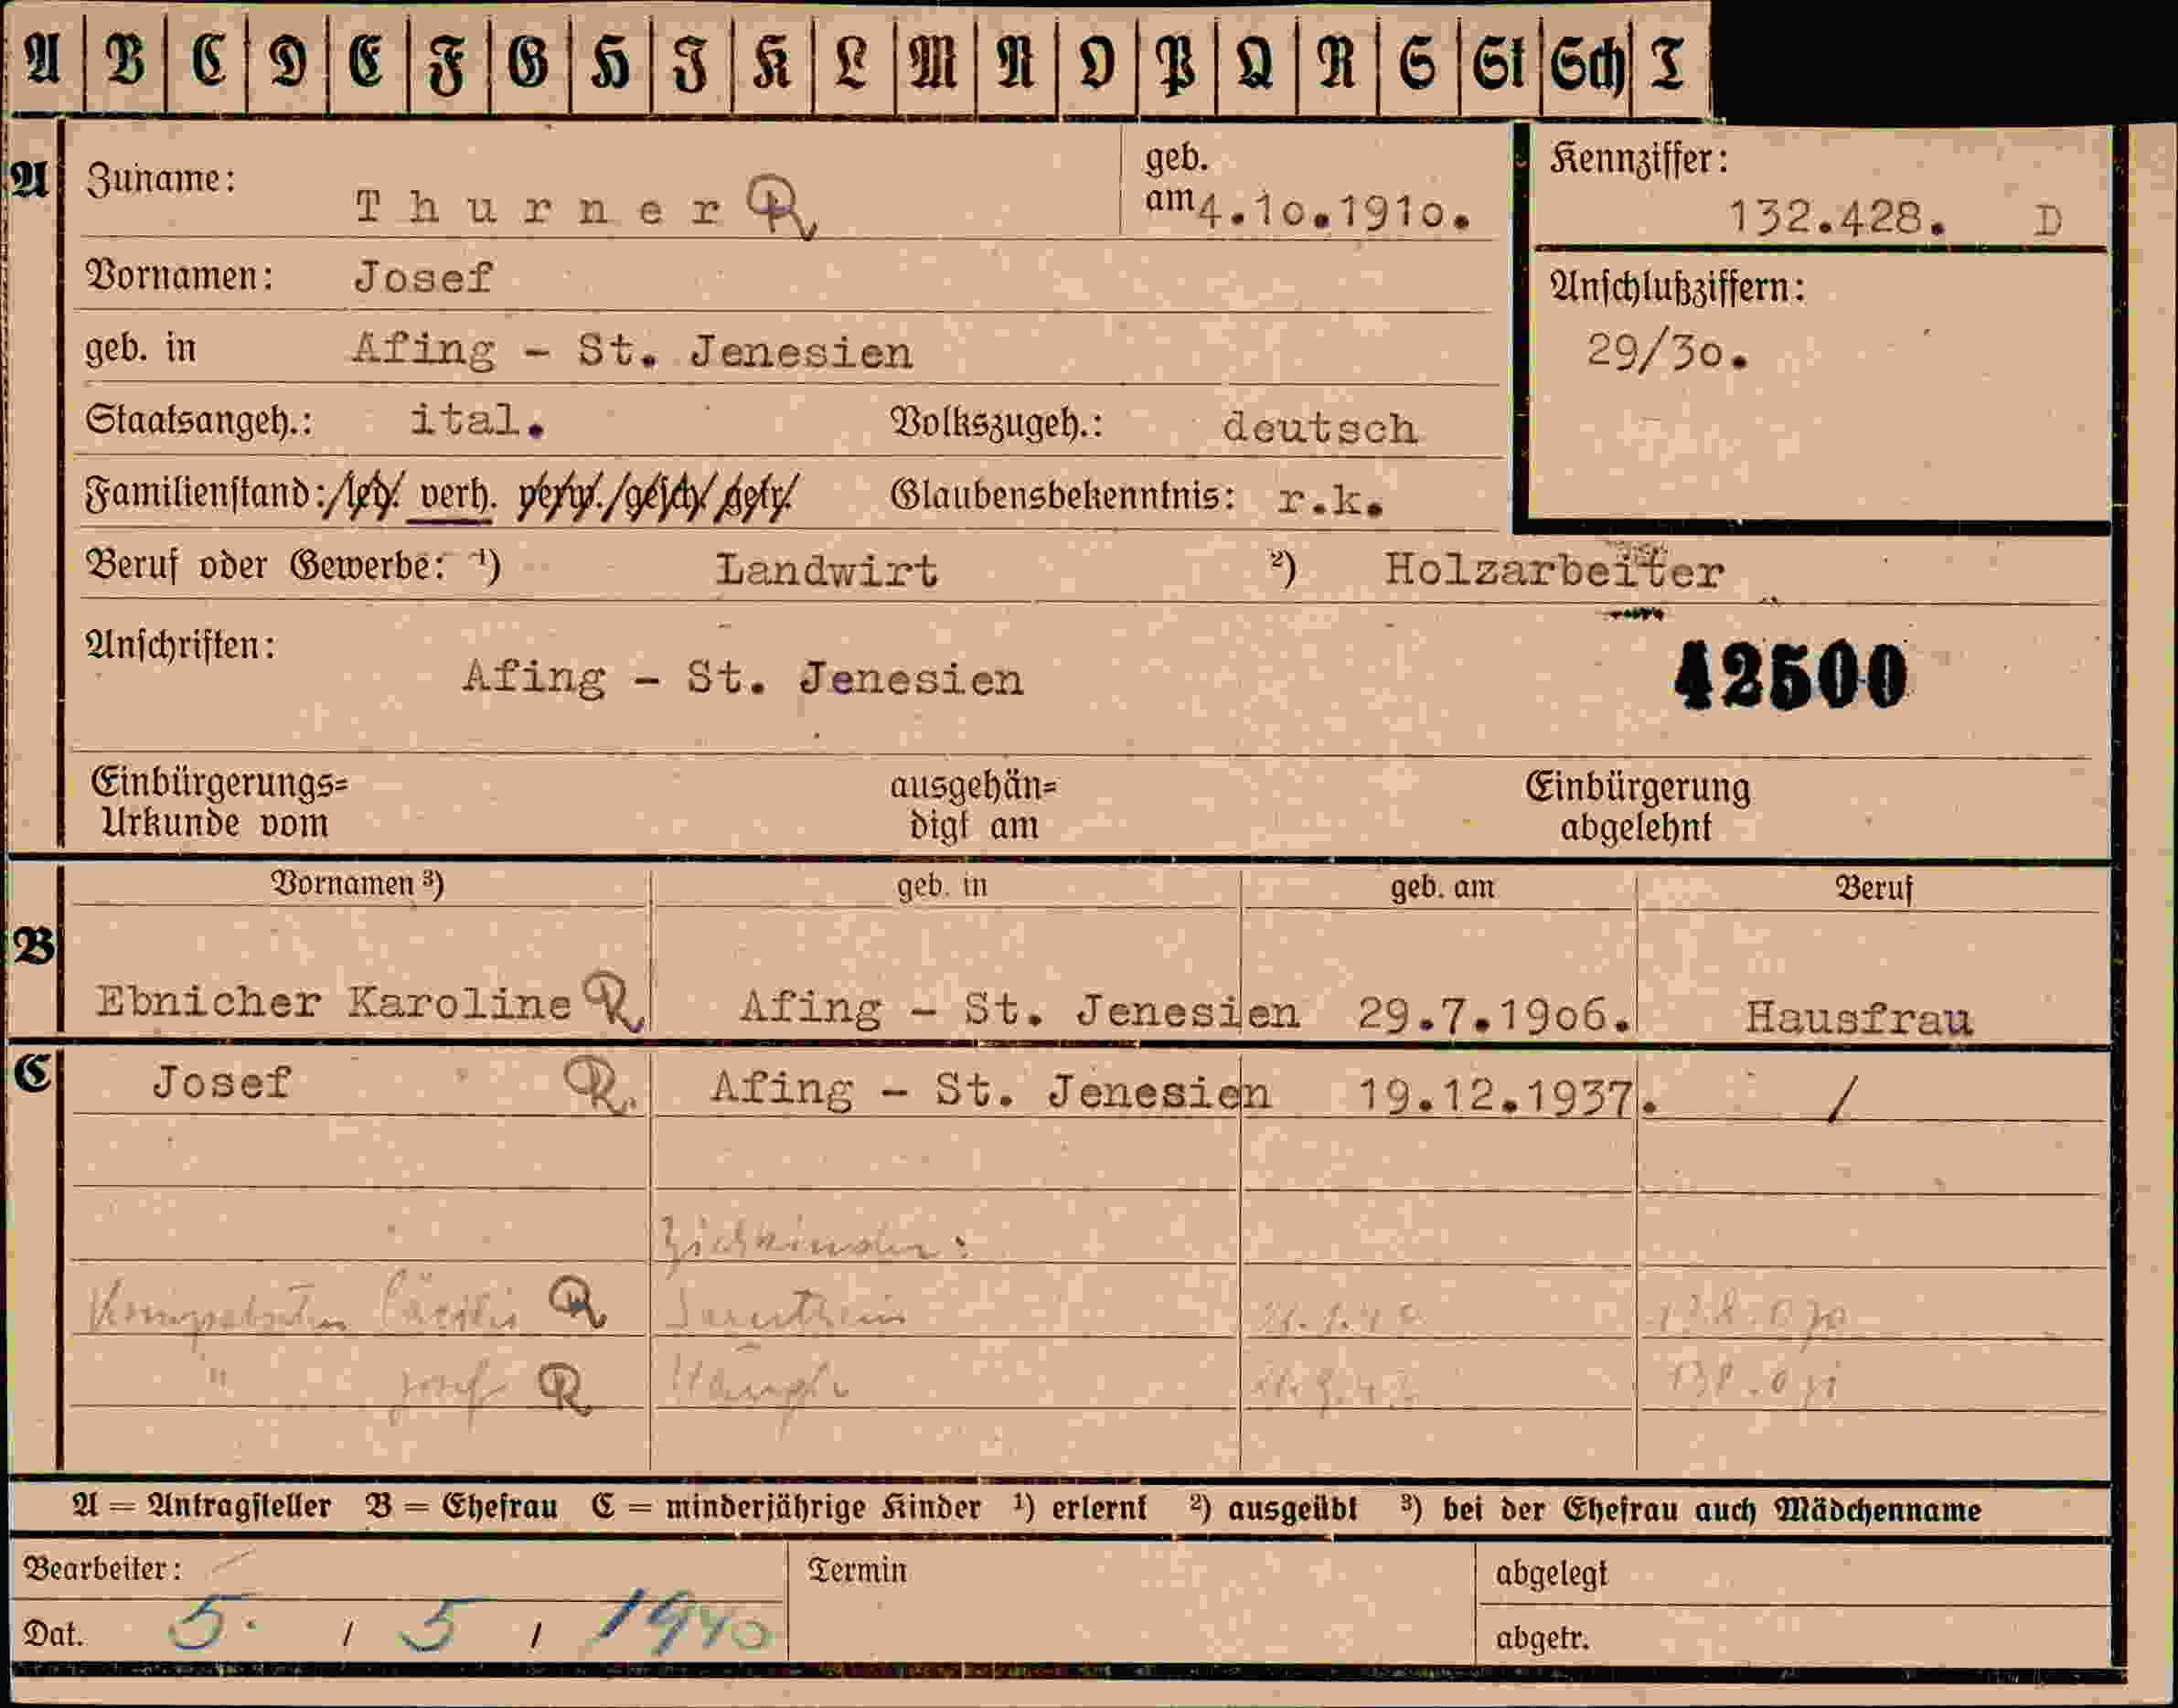 A B C D E F G H J K L M N O P Q R S St Sch T
A Zuname: Thurner R geb. am 4.10.1910. Kennziffer: 132.428. D
Vornamen: Josef Anschlußziffern:
geb. in Afing - St. Jenesien 29/30.
Staatsangeh.: ital. Volkszugeh.: deutsch
Familienstand: led. verh. verw. gesch. getr. Glaubensbekenntnis: r.k.
Beruf oder Gewerbe: ¹) Landwirt ²) Holzarbeiter
Anschriften: Afing - St. Jenesien 42500
Einbürgerungs= ausgehän= Einbürgerung
Urkunde vom digt am abgelehnt
Vornamen ³) geb. in geb. am Beruf
B
Ebnicher Karoline R Afing - St. Jenesien 29.7.1906. Hausfrau
C Josef R. Afing - St. Jenesien 19.12.1937. /
Ziehkinder:
Cäcilia R Sarnthein 138.070
" Josef R
A = Antragsteller B = Ehefrau C = minderjährige Kinder ¹) erlernt ²) ausgeübt ³) bei der Ehefrau auch Mädchenname
Bearbeiter: Termin abgelegt
Dat. 5. / 5 / 1940 abgetr.